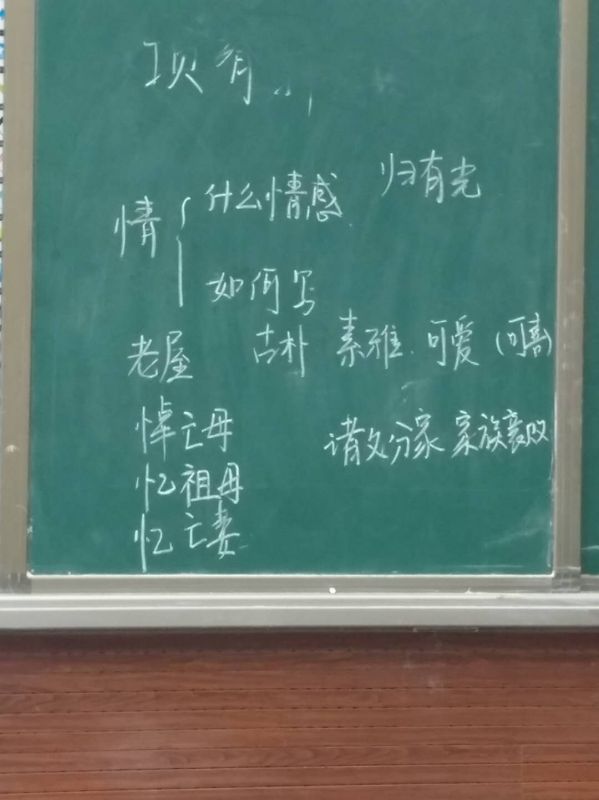 项
归有光
情 什么情感
如何写
老屋 古朴 素雅.可爱(可喜)
悼亡母 诸父分家 家族衰败
忆祖母
忆亡妻